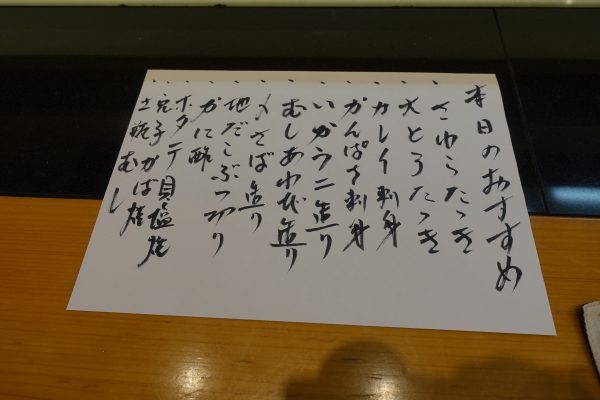 本日のおすすめ
さわらたゝき
大とろたゝき
カレイ刺身
かんぱち刺身
いかうに造り
むしあわび造り
〆さば造り
地だこぶつ切り
かに酢
ホタテ貝塩焼
穴子かば焼
土瓶むし